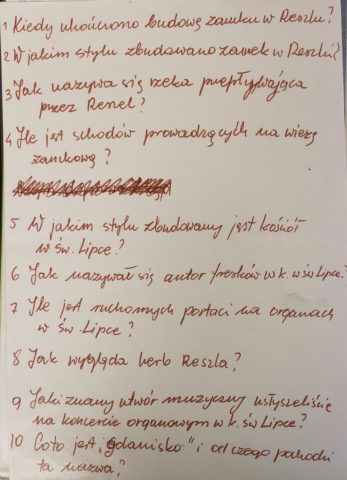 1 Kiedy ukończono budowę zamku w Reszlu?
2 W jakim stylu zbudowano zamek w Reszlu?
3 Jak nazywa się rzeka przepływająca
przez Reszel?
4 Ile jest schodów prowadzących na wieżę
zamkową?
5 W jakim stylu zbudowany jest kościół
w Św. Lipce?
6 Jak nazywał się autor fresków w k. w św Lipce?
7 Ile jest ruchomych postaci na organach
w Św. Lipce?
8 Jak wygląda herb Reszla?
9 Jaki znany utwór muzyczny usłyszeliście
na koncercie organowym w k. św Lipce?
10 Co to jest "gdanisko" i od czego pochodzi
ta nazwa?